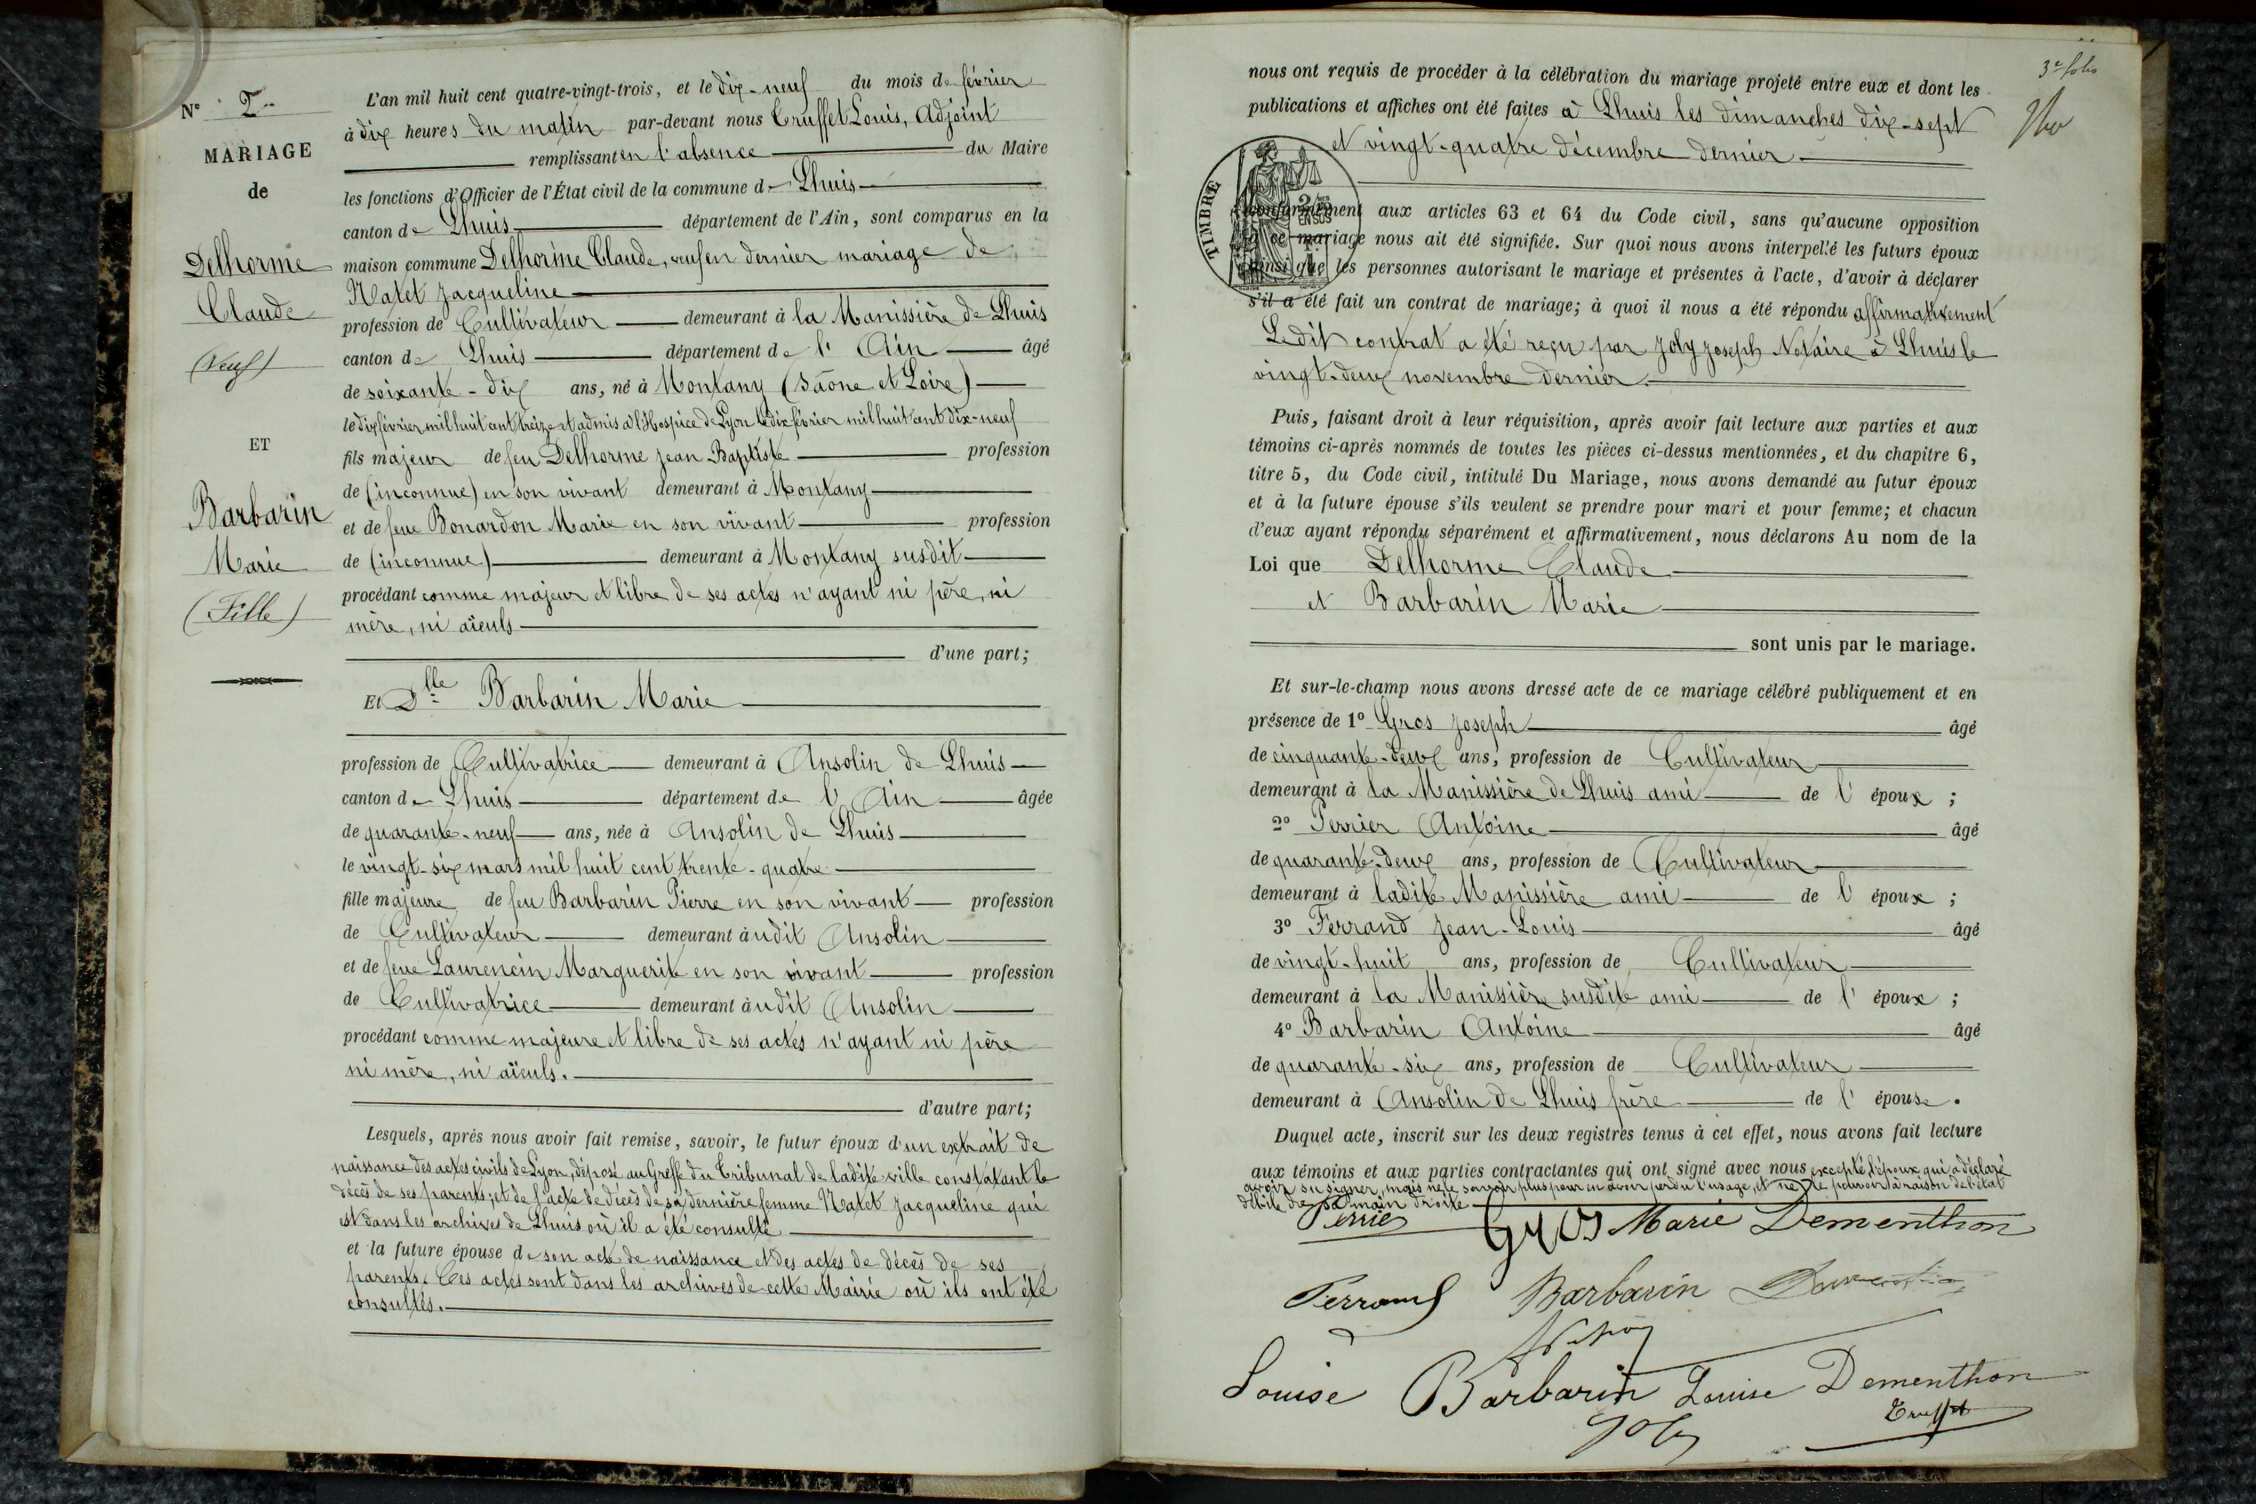 N° 2
MARIAGE
de
Delhorme
Claude
(Veuf)
ET
Barbarin
Marie
(Fille)
L'an mil huit cent quatre-vingt-trois, et le dix-neuf du mois de février
à dix heures du matin par-devant nous Truffet Louis, Adjoint
remplissant en l'absence du Maire
les fonctions d'Officier de l'État civil de la commune de Lhuis
canton de Lhuis département de l'Ain, sont comparus en la
maison commune Delhorme Claude, veuf en dernier mariage de
Natet Jacqueline
profession de Cultivateur demeurant à la Manissière de Lhuis
canton de Lhuis département de l'Ain âgé
de soixante-dix ans, né à Montany (Saône et Loire)
le dix février mil huit cent treize et admis à l'Hospice de Lyon le dix février mil huit cent dix-neuf
fils majeur de feu Delhorme Jean Baptiste profession
de (inconnue) en son vivant demeurant à Montany
et de feue Bonardon Marie en son vivant profession
de (inconnue) demeurant à Montany susdit
procédant comme majeur et libre de ses actes n'ayant ni père, ni
mère, ni aïeuls
d'une part;
Et Dlle Barbarin Marie
profession de Cultivatrice demeurant à Ansolin de Lhuis
canton de Lhuis département de l'Ain âgée
de quarante-neuf ans, née à Ansolin de Lhuis
le vingt-six mars mil huit cent trente-quatre
fille majeure de feu Barbarin Pierre en son vivant profession
de Cultivateur demeurant àudit Ansolin
et de feue Laurencin Marguerite en son vivant profession
de Cultivatrice demeurant àudit Ansolin
procédant comme majeure et libre de ses actes n'ayant ni père
ni mère, ni aïeuls.
d'autre part;
Lesquels, après nous avoir fait remise, savoir, le futur époux d'un extrait de
naissance des actes civils de Lyon, déposé au Greffe du Tribunal de ladite ville constatant le
décès de ses parents; et de l'acte de décès de sa dernière femme Natet Jacqueline qui
est dans les archives de Lhuis où il a été consulté
et la future épouse de son acte de naissance et des actes de décès de ses
parents. Ces actes sont dans les archives de cette Mairie où ils ont été
consultés.
3e folio
nous ont requis de procéder à la célébration du mariage projeté entre eux et dont les
publications et affiches ont été faites à Lhuis les dimanches dix-sept
et vingt-quatre décembre dernier
TIMBRE
EN SUS
conformément aux articles 63 et 64 du Code civil, sans qu'aucune opposition
à ce mariage nous ait été signifiée. Sur quoi nous avons interpellé les futurs époux
ainsi que les personnes autorisant le mariage et présentes à l'acte, d'avoir à déclarer
s'il a été fait un contrat de mariage; à quoi il nous a été répondu affirmativement
Ledit contrat a été reçu par Joly Joseph Notaire à Lhuis le
vingt-deux novembre dernier.
Puis, faisant droit à leur réquisition, après avoir fait lecture aux parties et aux
témoins ci-après nommés de toutes les pièces ci-dessus mentionnées, et du chapitre 6,
titre 5, du Code civil, intitulé Du Mariage, nous avons demandé au futur époux
et à la future épouse s'ils veulent se prendre pour mari et pour femme; et chacun
d'eux ayant répondu séparément et affirmativement, nous déclarons Au nom de la
Loi que Delhorme Claude
et Barbarin Marie
sont unis par le mariage.
Et sur-le-champ nous avons dressé acte de ce mariage célébré publiquement et en
présence de 1° Gros Joseph âgé
de cinquante-deux ans, profession de Cultivateur
demeurant à la Manissière de Lhuis ami de l'époux ;
2° Perrier Antoine âgé
de quarante-deux ans, profession de Cultivateur
demeurant à ladite Manissière ami de l'époux ;
3° Ferrand Jean-Louis âgé
de vingt-huit ans, profession de Cultivateur
demeurant à la Manissière susdite ami de l'époux ;
4° Barbarin Antoine âgé
de quarante-six ans, profession de Cultivateur
demeurant à Ansolin de Lhuis frère de l'épouse.
Duquel acte, inscrit sur les deux registres tenus à cet effet, nous avons fait lecture
aux témoins et aux parties contractantes qui ont signé avec nous excepté l'époux qui a déclaré
avoir su signer, mais ne le savoir plus pour en avoir perdu l'usage, et ne le pouvoir à raison de l'état
débile de sa main droite
Perrier Gros Marie Dementhon
Ferrand Barbarin
Louise Barbarin Louise Dementhon
Joly Truffet